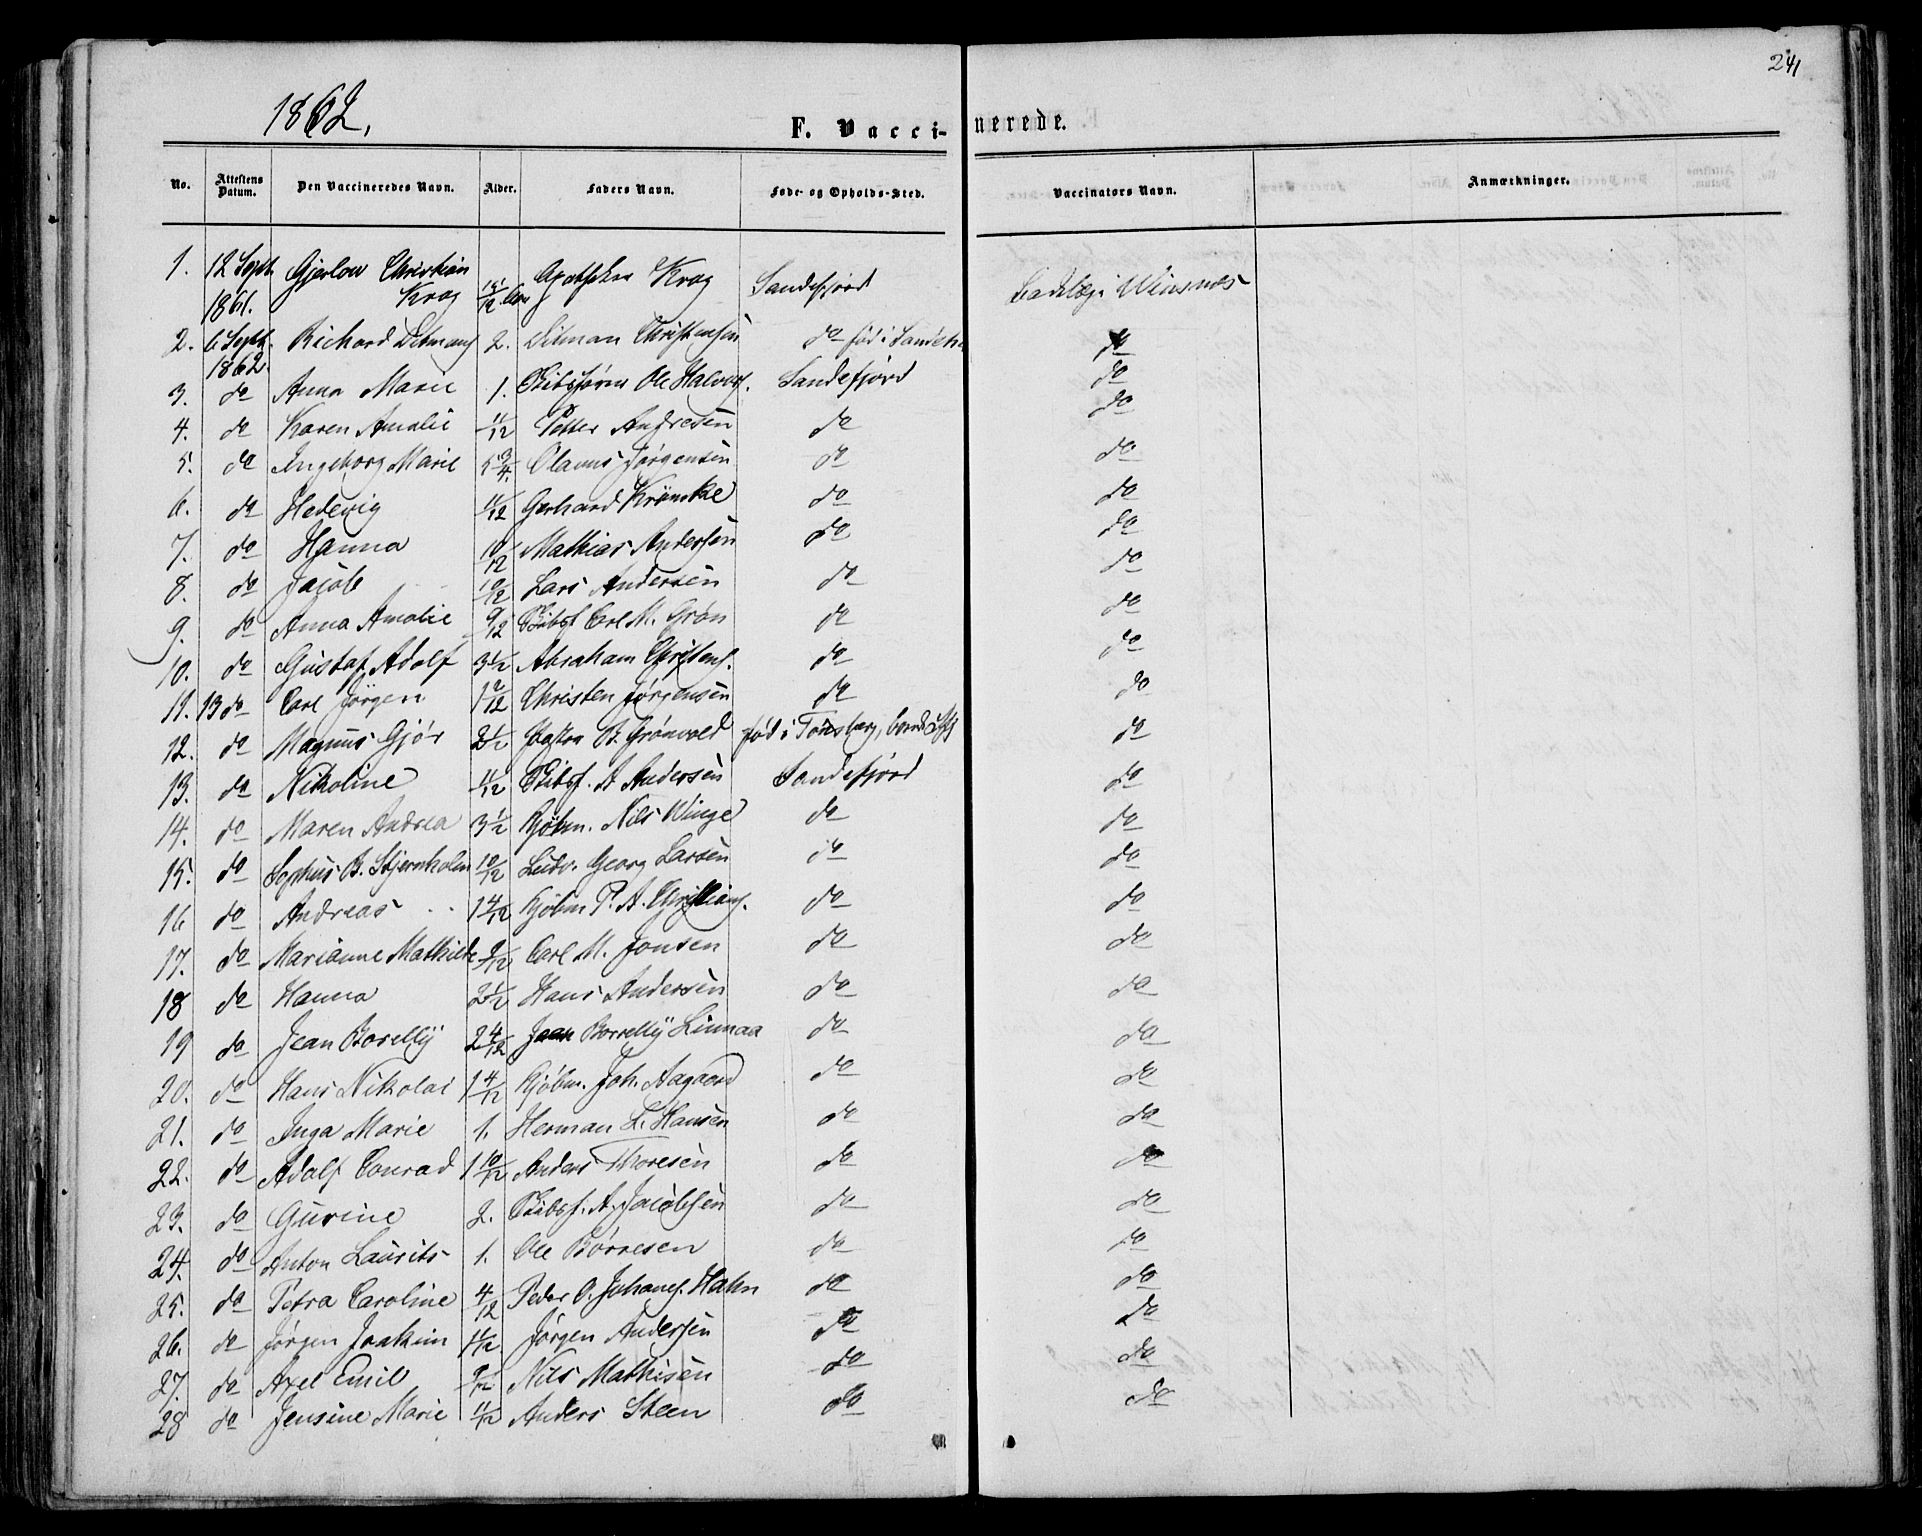 241
1862.
F. Vaccinerede.
No. Attestens Datum. Den Vaccineredes Navn. Alder. Faders Navn. Føde- og Opholds-Sted. Vaccinators Navn. Anmærkninger.
1. 12 Sept. 1861. Gjerlow Christian Krog Apotheker Krog Sandefjord Badelæge Winsnes
2. 6 Sept. 1862 Richard Ditmans 2. Ditman Christensen do fød i do
3. do Anna Marie 1. Skibsfører Ole Halvors. Sandefjord do
4. do Karen Amalie 11/12 Petter Andresen do do
5. do Ingeborg Marie 5 3/4. Olaus Jørgensen do do
6. do Hedevig 11/12 Gerhard do do
7. do Hanna 10/12 Mathias Andersen do do
8. do Jacob 10/12 Lars Andersen do do
9. do Anna Amalie 9/12 Skibsf Carl M. Grøn do do
10. do Gustaf Adolf 3 1/2 Abraham Christens. do do
11. 13 do Carl Jörgen 1 2/12 Christen Jørgensen do do
12. do Magnus Gjør 2 1/2 B. Grönvold fød i Tønsberg, do
13. do Nikoline 11/12 Skibsf. A Andersen Sandefjord do
14. do Maren Andrea 3 1/2 Kjøbm. Nils Winge do do
15. do Sophus B. Stjernholm 10/12 Ludv. Georg Larsen do do
16 do Andreas 1 4/12 Kjøbm P. A. Christians. do do
17. do Marianne Mathilde 9/12 Carl M. Jonsen do do
18 do Hanna 2 1/2 Hans Andersen do do
19 do Jean Borellÿ 2 4/12 Jean Borrellÿ Linnaa do do
20. do Hans Nikolai 1 4/12 Kjøbm. Joh. Aagaard do do
21. do Inga Marie 1. Herman L. Hansen do do
22. do Adolf Conrad 1 10/12 Anders Thoresen do do
23. do Gurine 2. Skibsf. A. Jacobsen do do
24. do Anton Laurits 1. Ole Börresen do do
25. do Petra Caroline 4/12 Peder O. Johans. Hahn do do
26. do Jørgen Joakim 11/12 Jörgen Andersen do do
27. do Axel Emil 9/12 Nils Mathisen do do
28 do Jensine Marie 11/12 Anders Steen do do